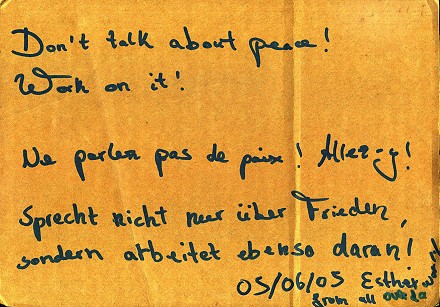 Don't talk about peace!
Work on it!
Ne parlez pas de paix! Allez-y!
Sprecht nicht nur über Frieden,
sondern arbeitet ebenso daran!
05/06/05 Esther
from all